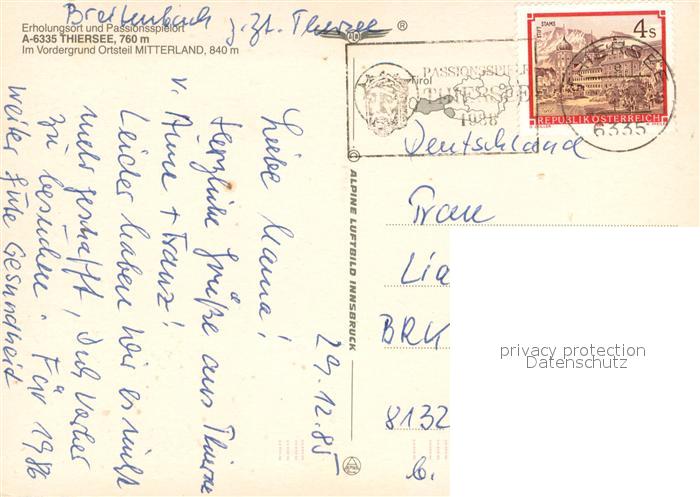 Breitenbach z. Zt. Thiersee
Erholungsort und Passionsspielort
A-6335 THIERSEE, 760 m
Im Vordergrund Ortsteil MITTERLAND, 840 m
®
29.12.85
Liebe Mama!
Herzliche Grüße aus Thiersee
v. Anne + Franz!
Leider haben wir es nicht
mehr geschafft, Dich vorher
zu besuchen. Für 1986
weiter gute Gesundheit
© ALPINE LUFTBILD INNSBRUCK
Tirol
PASSIONSSPIELE
THIERSEE
6335
STIFT STAMS
4 S
REPUBLIK ÖSTERREICH
Deutschland
Frau
Lia
BRK
8132
privacy protection
Datenschutz